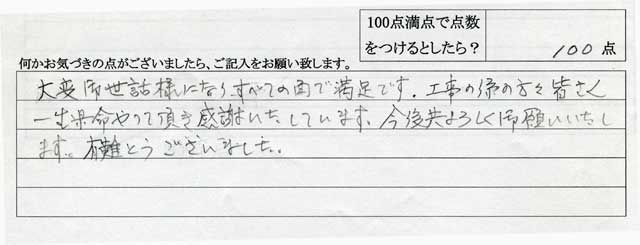 100点満点で点数
をつけるとしたら？
100 点
何かお気づきの点がございましたら、ご記入をお願い致します。
大変御世話様になり、すべての面で満足です。工事の係の方々皆さん
一生県命やって頂き感謝いたしています。今後共よろしく御願いいたし
ます。有難とうございました。